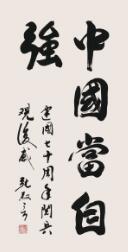 中國當自
強
建國七十周年閱兵
觀後感